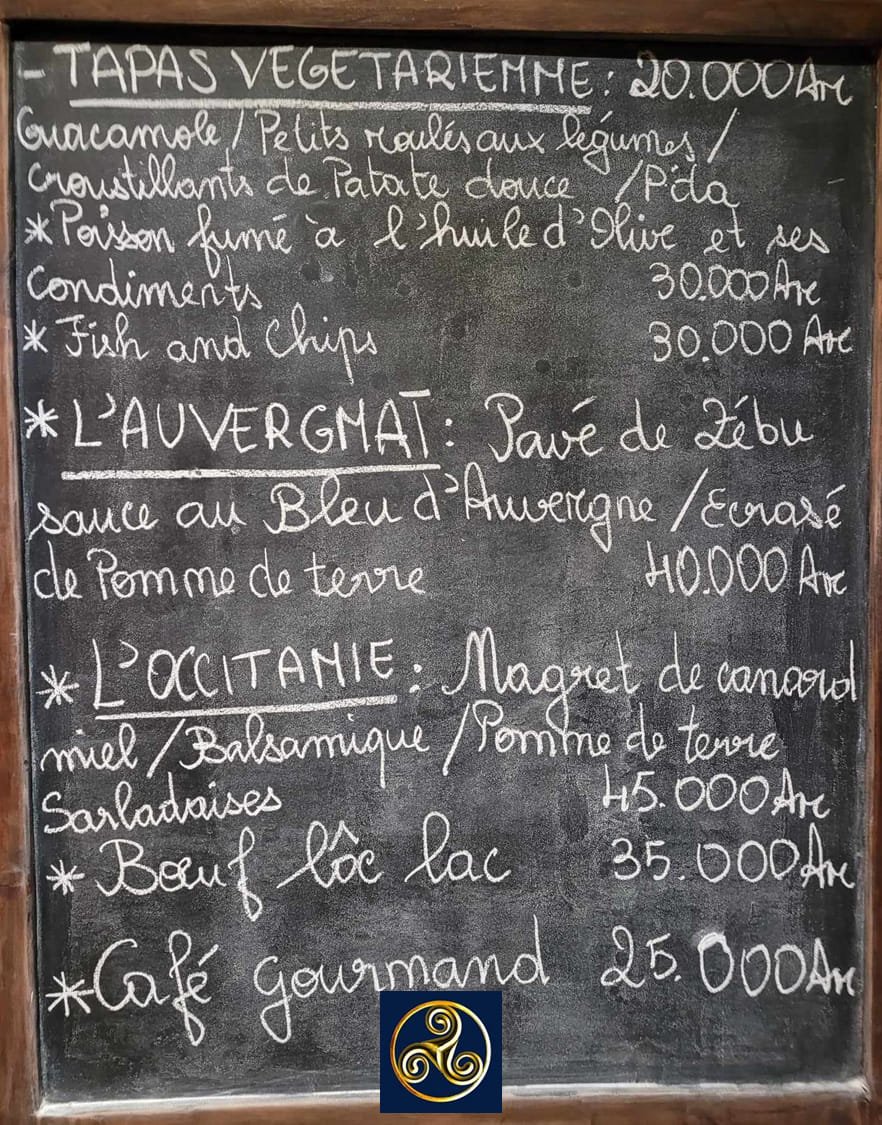 - TAPAS VEGETARIENNE : 20.000 Ar
Guacamole / Petits roulés aux légumes /
Croustillants de Patate douce / Pita
* Poisson fumé à l'huile d'Olive et ses
Condiments 30.000 Ar
* Fish and Chips 30.000 Ar
* L'AUVERGNAT : Pavé de Zébu
sauce au Bleu d'Auvergne / Ecrasé
de Pomme de terre 40.000 Ar
* L'OCCITANIE : Magret de canard
miel / Balsamique / Pomme de terre
Sarladaises 45.000 Ar
* Bœuf lôc lac 35.000 Ar
* Café gourmand 25.000 Ar